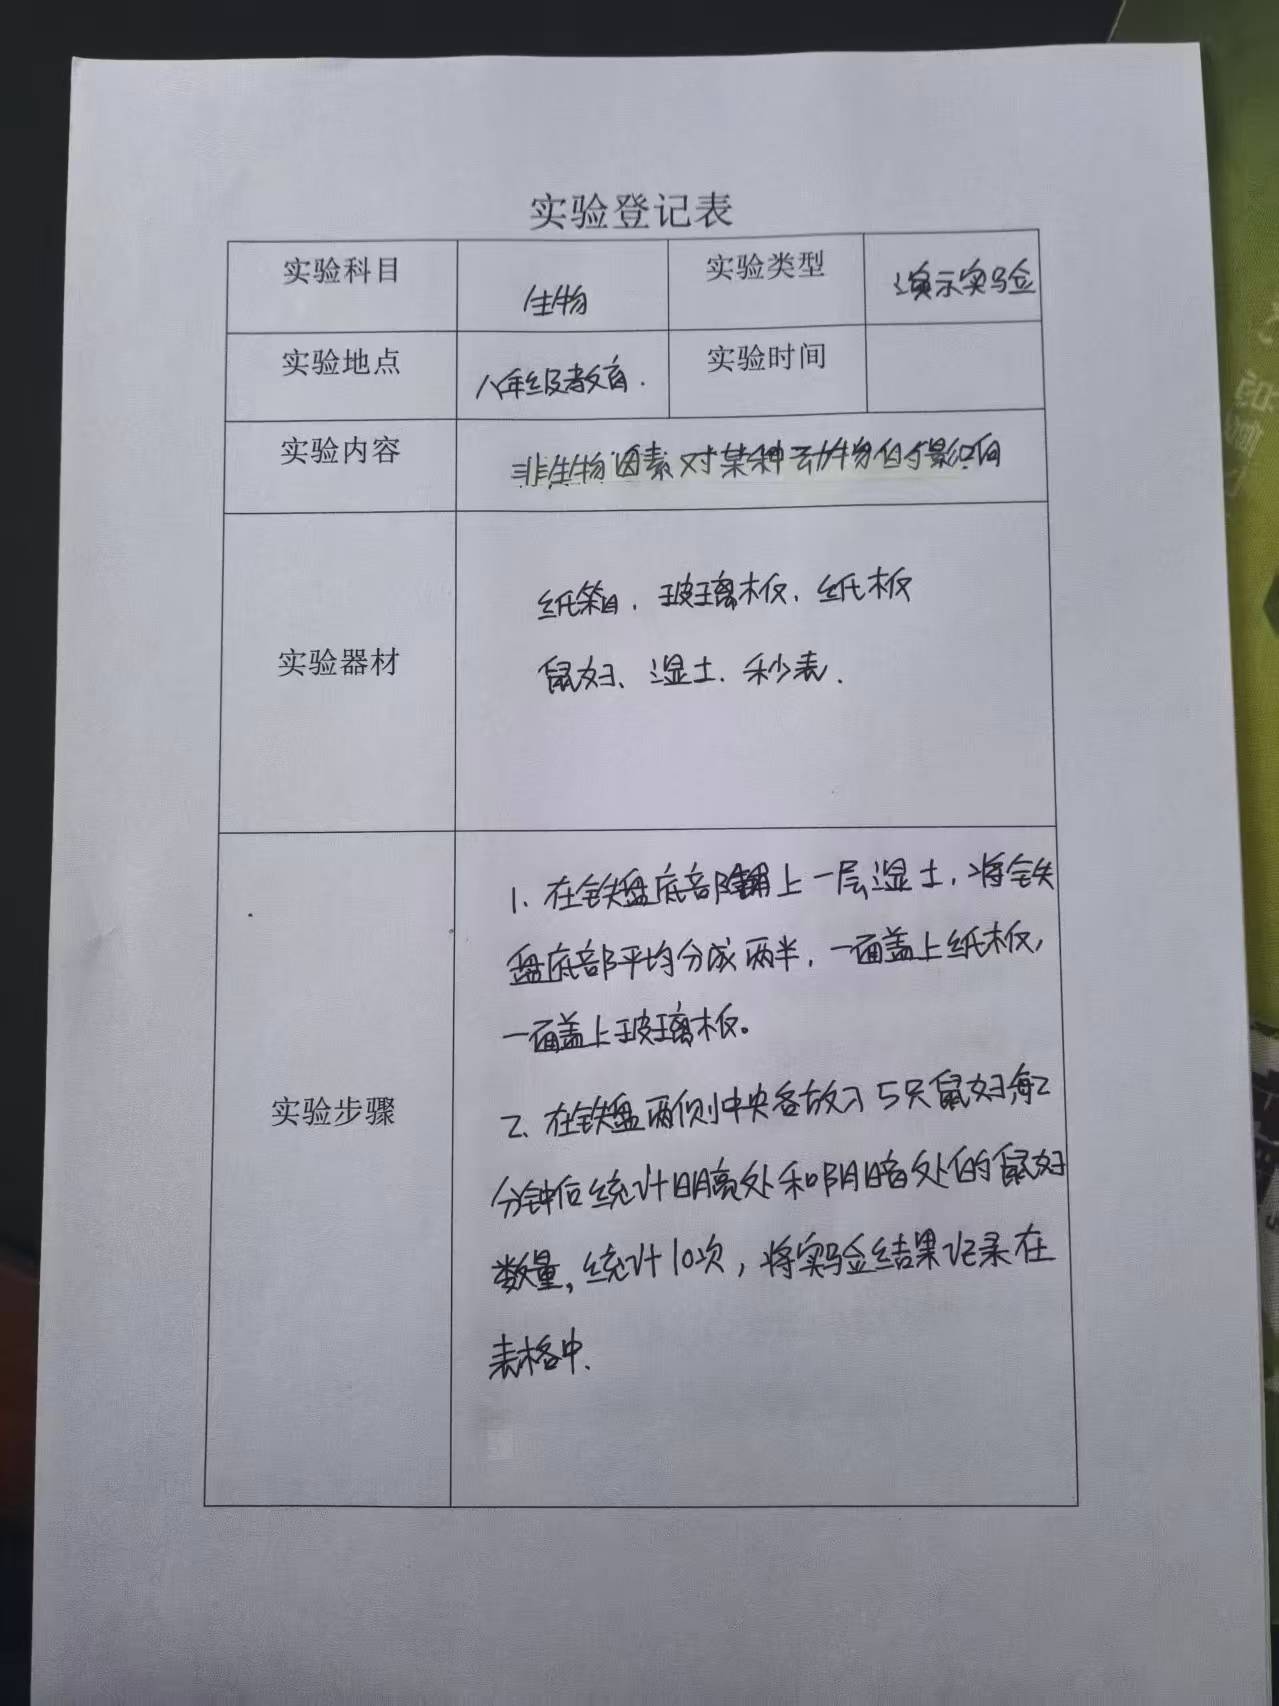 实验登记表
实验科目 生物 实验类型 演示实验
实验地点 八年级教育. 实验时间
实验内容 非生物因素对某种动物的影响
实验器材
纸箱、玻璃板、纸板
鼠妇、湿土、秒表.
实验步骤
1、在铁盘底部铺上一层湿土,将铁
盘底部平均分成两半,一面盖上纸板,
一面盖上玻璃板。
2、在铁盘两侧中央各放入5只鼠妇每2
分钟后统计明亮处和阴暗处的鼠妇
数量,统计10次,将实验结果记录在
表格中、